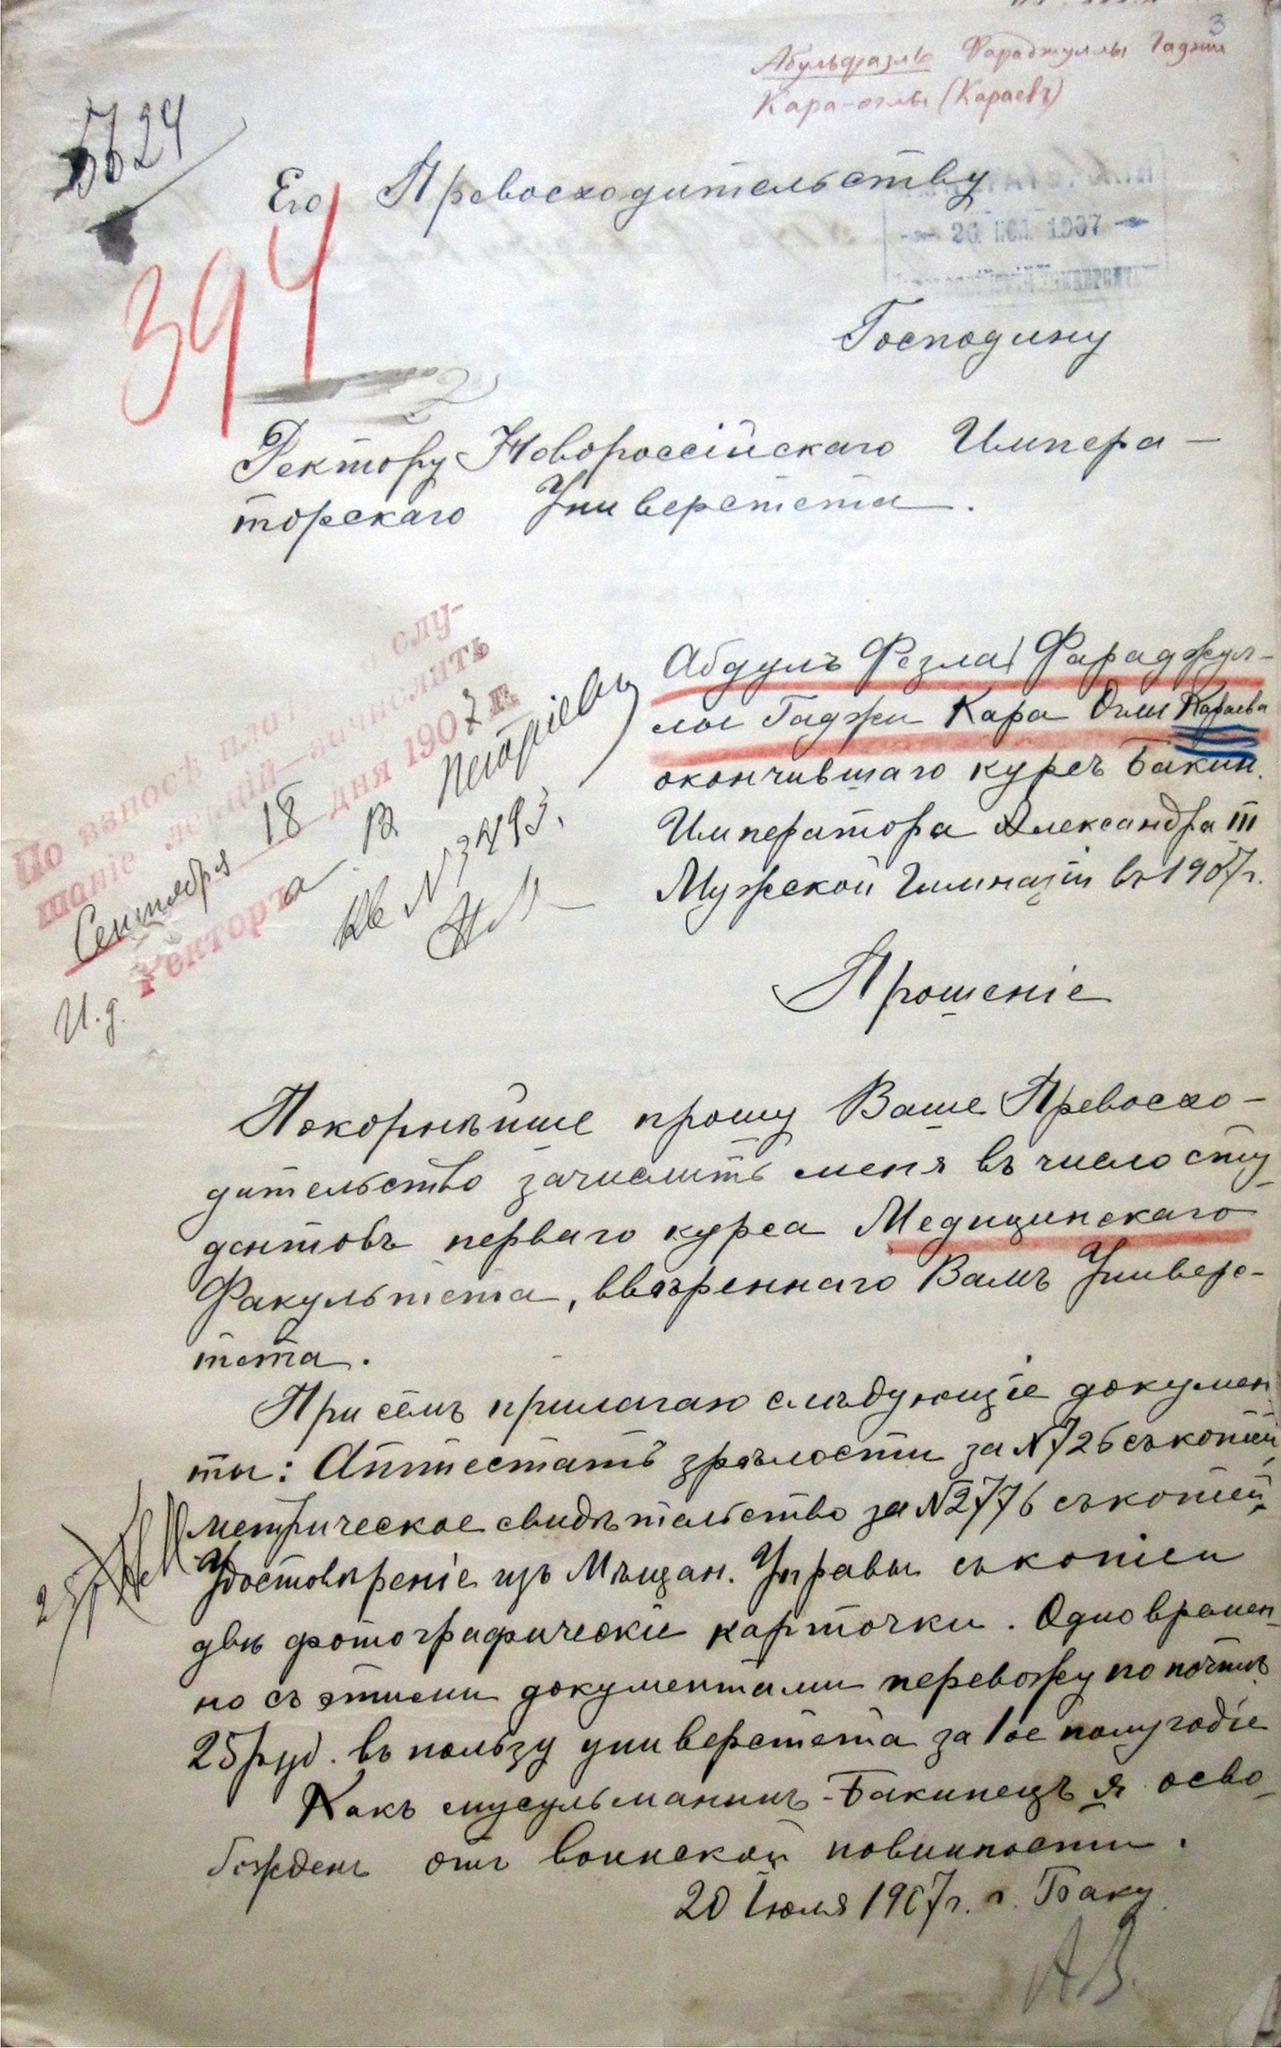 3
Абульфазлъ Фараджуллы Гаджи
Кара-оглы (Караевъ)
5624
Его Превосходительству
20 ІЮЛ 1907
394
Господину
Ректору Новороссійскаго Импера-
торскаго Университета.
Абдулъ Фезла Фараджул-
лы Гаджи Кара Оглы Караева
окончившаго курсъ Бакин.
Императора Александра III
Мужской Гимназіи въ 1907 г.
По взносѣ плат слу-
шаніе лекцій—зачислить
Сентября 18 дня 1907 г.
И. д. Ректора
Кв N 3493.
Прошеніе
Покорнѣйше прошу Ваше Превосхо-
дительство зачислить меня въ число сту-
дентовъ перваго курса Медицинскаго
Факультета, ввѣреннаго Вамъ Универс-
тета.
При семъ прилагаю слѣдующіе докумен
ты: Аттестатъ зрѣлости за N 726 съ копіей,
метрическое свидѣтельство за N 2776 съ копіей,
Удостовѣреніе изъ Мѣщан. Управы съ копіей
двѣ фотографическіе карточки. Одновремен-
но съ этими документами перевожу по почтѣ
25 руб. въ пользу университета за 1ое полугодіе
Какъ мусульманинъ-Бакинецъ я осво-
божденъ отъ воинской повинности.
20 Іюля 1907 г. г. Баку.